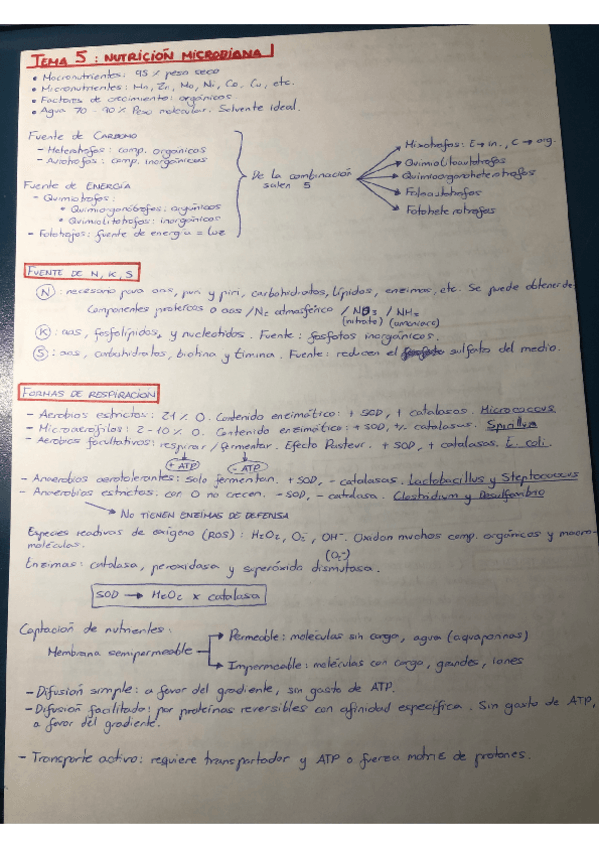 TEMA 5: NUTRICIÓN MICROBIANA
• Macronutrientes: 95% peso seco
• Micronutrientes: Mn, Zn, Mo, Ni, Co, Cu, etc.
• Factores de crecimiento: orgánicos
• Agua 70-90% Peso molecular. Solvente ideal.
Fuente de CARBONO
- Heterótrofos: comp. orgánicos
- Autótrofos: comp. inorgánicos
Fuente de ENERGÍA
- Quimiotrofos:
• Quimiorganótrofos: orgánicos
• Quimiolitotrofos: inorgánicos
- Fototrofos: fuente de energía = luz
De la combinación
salen 5
Mixotrofos: E → in., C → org.
Quimiolitoautótrofos
Quimioorganoheterótrofos
Fotoautótrofos
Fotoheterótrofos
FUENTE DE N, K, S
N : necesario para aas, puri y piri, carbohidratos, lípidos, enzimas, etc. Se puede obtener de
Componentes proteicos o aas / N2 atmosférico / NO3 / NH3
(nitrato) (amoniaco)
K : aas, fosfolípidos, y nucleótidos. Fuente: fosfatos inorgánicos.
S : aas, carbohidratos, biotina y timina. Fuente: reducen el sulfato del medio.
FORMAS DE RESPIRACIÓN
- Aerobios estrictos: 21% O. Contenido enzimático: + SOD, + catalasas. Micrococcus
- Microaerófilos: 2-10% O. Contenido enzimático: + SOD, +/- catalasas. Spirillum
- Aerobios facultativos: respirar / fermentar. Efecto Pasteur. + SOD, + catalasas. E. coli.
+ ATP - ATP
- Anaerobios aerotolerantes: Solo fermentan. + SOD, - catalasas. Lactobacillus y Streptococcus
- Anaerobios estrictos: con O no crecen. - SOD, - catalasa. Clostridium y Desulfovibrio
No TIENEN ENZIMAS DE DEFENSA
Especies reactivas de oxígeno (ROS): H2O2, O2-, OH-. Oxidan muchos comp. orgánicos y macro-
moléculas.
(O2-)
Enzimas: catalasa, peroxidasa y superóxido dismutasa.
SOD → H2O2 x catalasa
Captación de nutrientes:
Membrana semipermeable
Permeable: moléculas sin carga, agua (aquaporinas)
Impermeable: moléculas con carga, grandes, iones
- Difusión simple: a favor del gradiente, sin gasto de ATP.
- Difusión facilitada: por proteínas reversibles con afinidad específica. Sin gasto de ATP,
a favor del gradiente.
- Transporte activo: requiere transportador y ATP o fuerza motriz de protones.